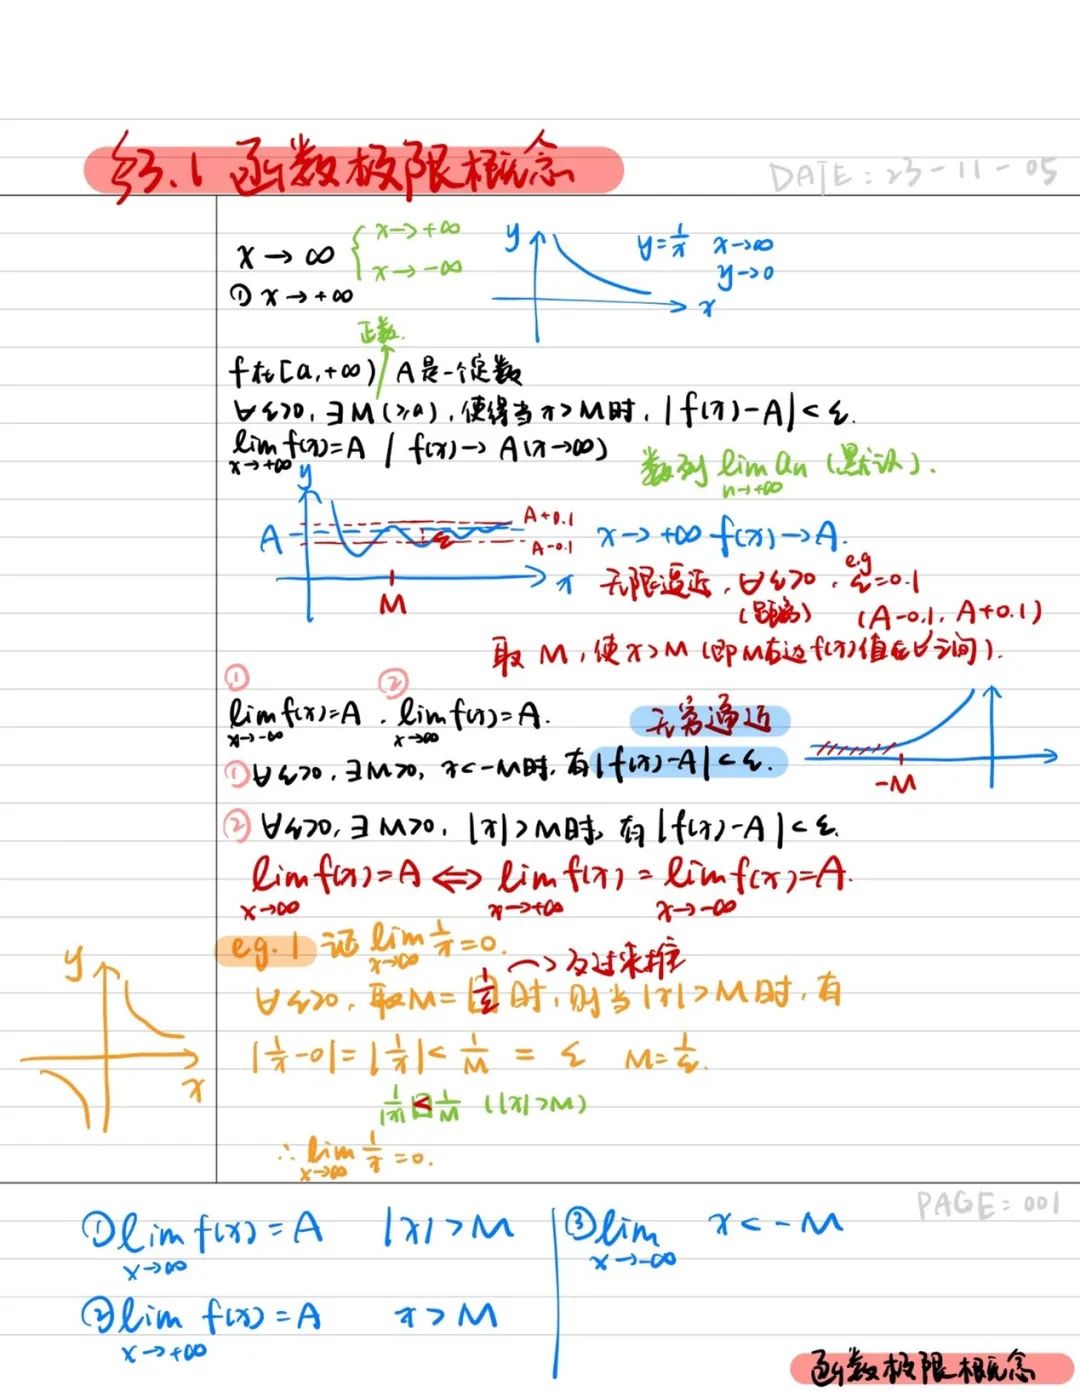 §3.1 函数极限概念
DATE: 23-11-05
x→∞ { x→+∞
x→-∞
y
y=1/x x→∞
y→0
x
① x→+∞
正数.
f在[a,+∞) A是一个定数
∀ε>0, ∃M(≥a), 使得当x>M时, |f(x)-A|<ε.
lim x→+∞ f(x)=A / f(x)→A(x→∞)
数列 lim n→+∞ an (默认).
y
A
A+0.1
A-0.1
ε
x
M
x→+∞ f(x)→A.
无限逼近, ∀ε>0, e.g ε=0.1
(距离) (A-0.1, A+0.1)
取M, 使x>M (即M右边f(x)值在 之间).
① ②
lim x→-∞ f(x)=A. lim x→∞ f(x)=A.
无穷逼近
① ∀ε>0, ∃M>0, x<-M时, 有|f(x)-A|<ε.
-M
② ∀ε>0, ∃M>0, |x|>M时, 有|f(x)-A|<ε.
lim x→∞ f(x)=A ⇔ lim x→+∞ f(x) = lim x→-∞ f(x)=A.
eg.1 证 lim x→∞ 1/x=0.
→反过来推
∀ε>0, 取M=1/ε时, 则当|x|>M时, 有
y
x
|1/x-0|=|1/x|<1/M = ε M=1/ε.
1/|x| < 1/M (|x|>M)
∴ lim x→∞ 1/x=0.
PAGE: 001
① lim x→∞ f(x)=A |x|>M
③ lim x→-∞ x<-M
② lim x→+∞ f(x)=A x>M
函数极限概念